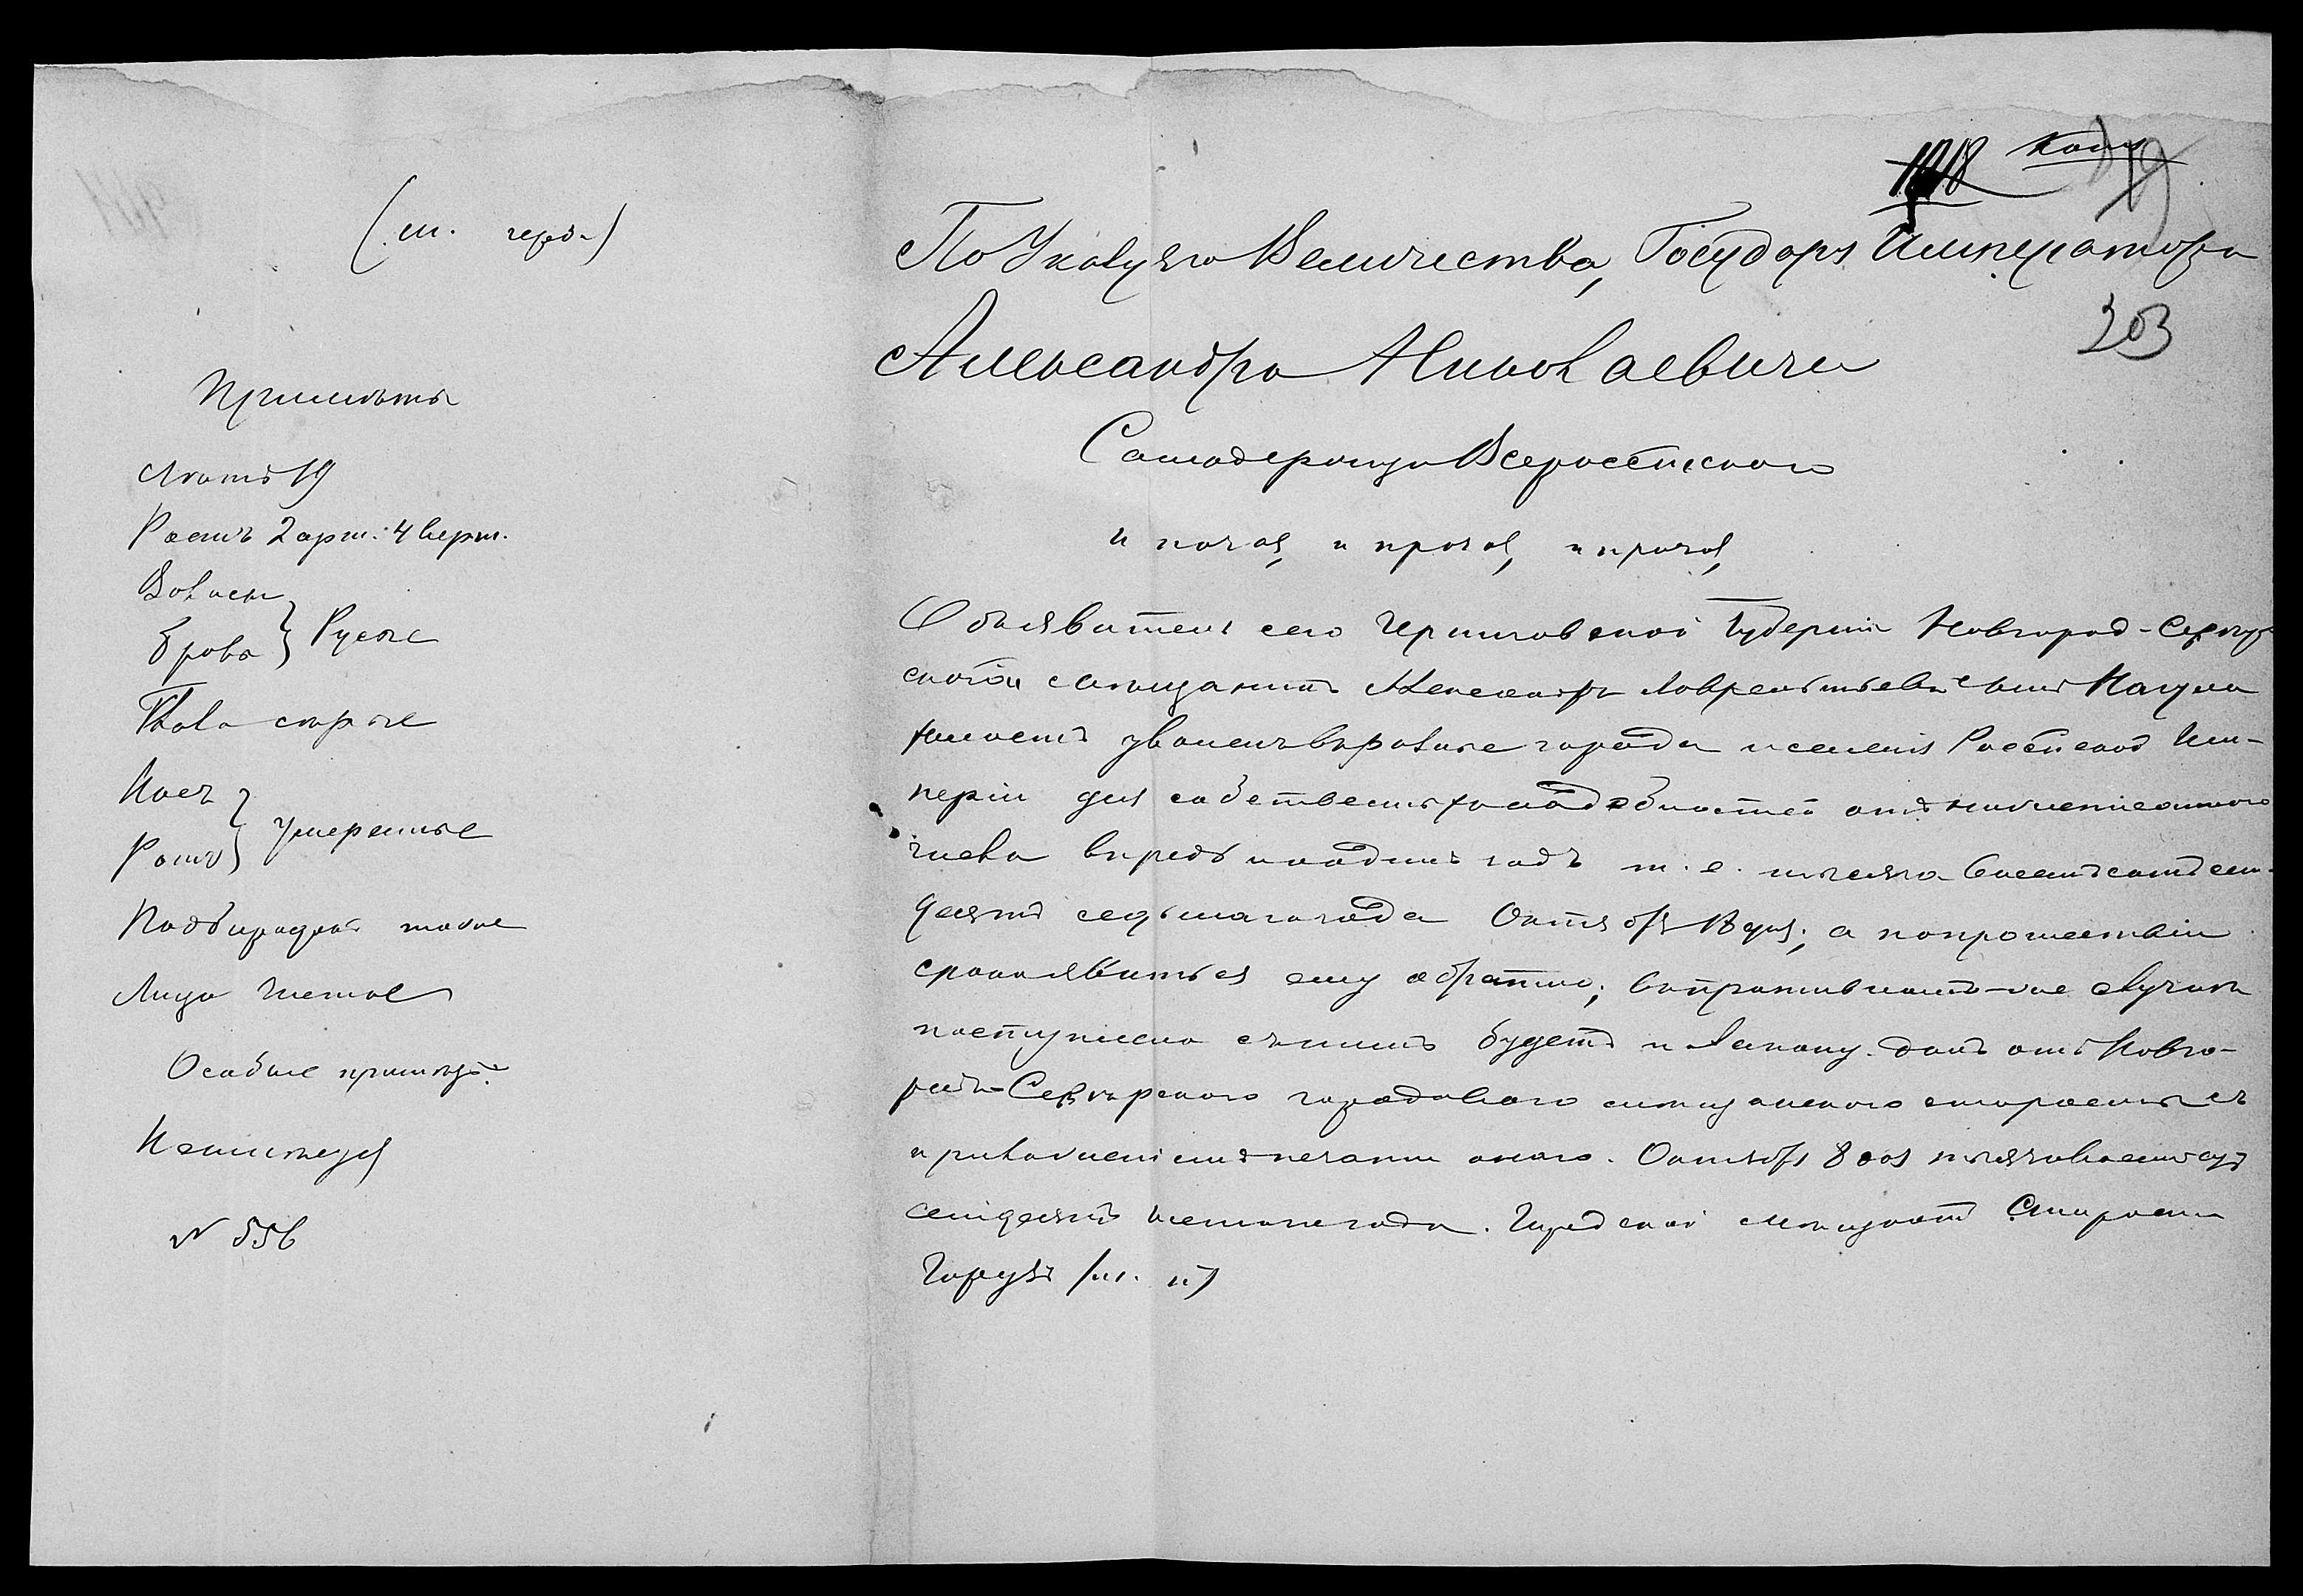 (ш. герб.)
Примѣты
Лѣтъ 19
Ростъ 2 арш. 4 верш.
Волосы
Брови } Русые
Глаза сѣрые
Носъ
Ротъ } умеренные
Подбородокъ тоже
Лицо чистое
Особые примѣты:
Неимѣется
№ 556
1018 Копія
По Указу его Величества, Государя Императора
203
Александра Николаевича
Самодержца Всероссійскаго
и прочая, и прочая, и прочая,
Объявитель сего Черниговской Губерніи Новгород-Сѣвер-
скотой мѣщанинъ Александръ Лаврентьевъ сынъ
уволенъ въ разные города и селенія Россійской Им-
періи для собственныхъ надобностей отъ нижеписанного
числа впредь на одинъ годъ т. е. тысяча восемьсотъ сем-
десятъ седьмаго года Октября 8 дня; а по прошествіи
срока явиться ему обратно; въ противномъ же случаѣ
поступлено съ нимъ будетъ по закону. Данъ отъ Новго-
родъ-Сѣверскаго городового мѣщанского старосты съ
приложеніемъ печати оного. Октября 8 дня тысяча восемьсотъ
семдесятъ шестого года. Городской мѣщанскій Староста
(м. п)